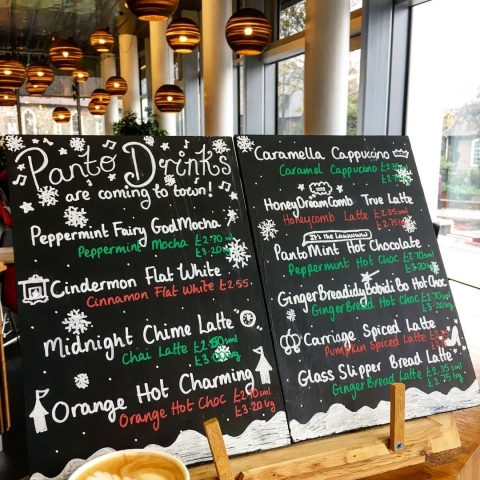 Panto Drinks
are coming to town!
Peppermint Fairy GodMocha
Peppermint Mocha £2.70 sml
£3.20 lrg
Cindermon Flat White
Cinnamon Flat White £2.55
Midnight Chime Latte
Chai Latte
Orange Hot Charming
Orange Hot Choc £2.70 sml
£3.20 lrg
Caramella Cappuccino
Caramel Cappuccino
HoneyDreamComb True Latte
Honeycomb Latte £2.35 sml
£2.75 lrg
It's the Lawwwww
PantoMint Hot Chocolate
Peppermint Hot Choc £2.70 sml
£3.20 lrg
GingerBreadidyBobidi Bo Hot Choc
GingerBread Hot Choc £2.70 sml
£3.20 lrg
Carriage Spiced Latte
Pumpkin Spiced Latte
Glass Slipper Bread Latte
GingerBread Latte £2.35 sml
£2.75 lrg